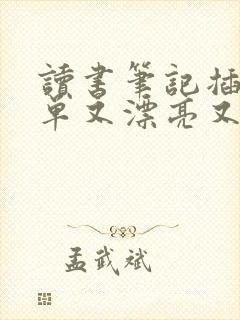 讀書筆記插
單又漂亮又
孟武斌